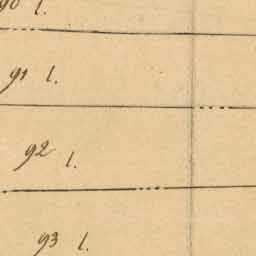 90 l.
91 l.
92 l.
93 l.